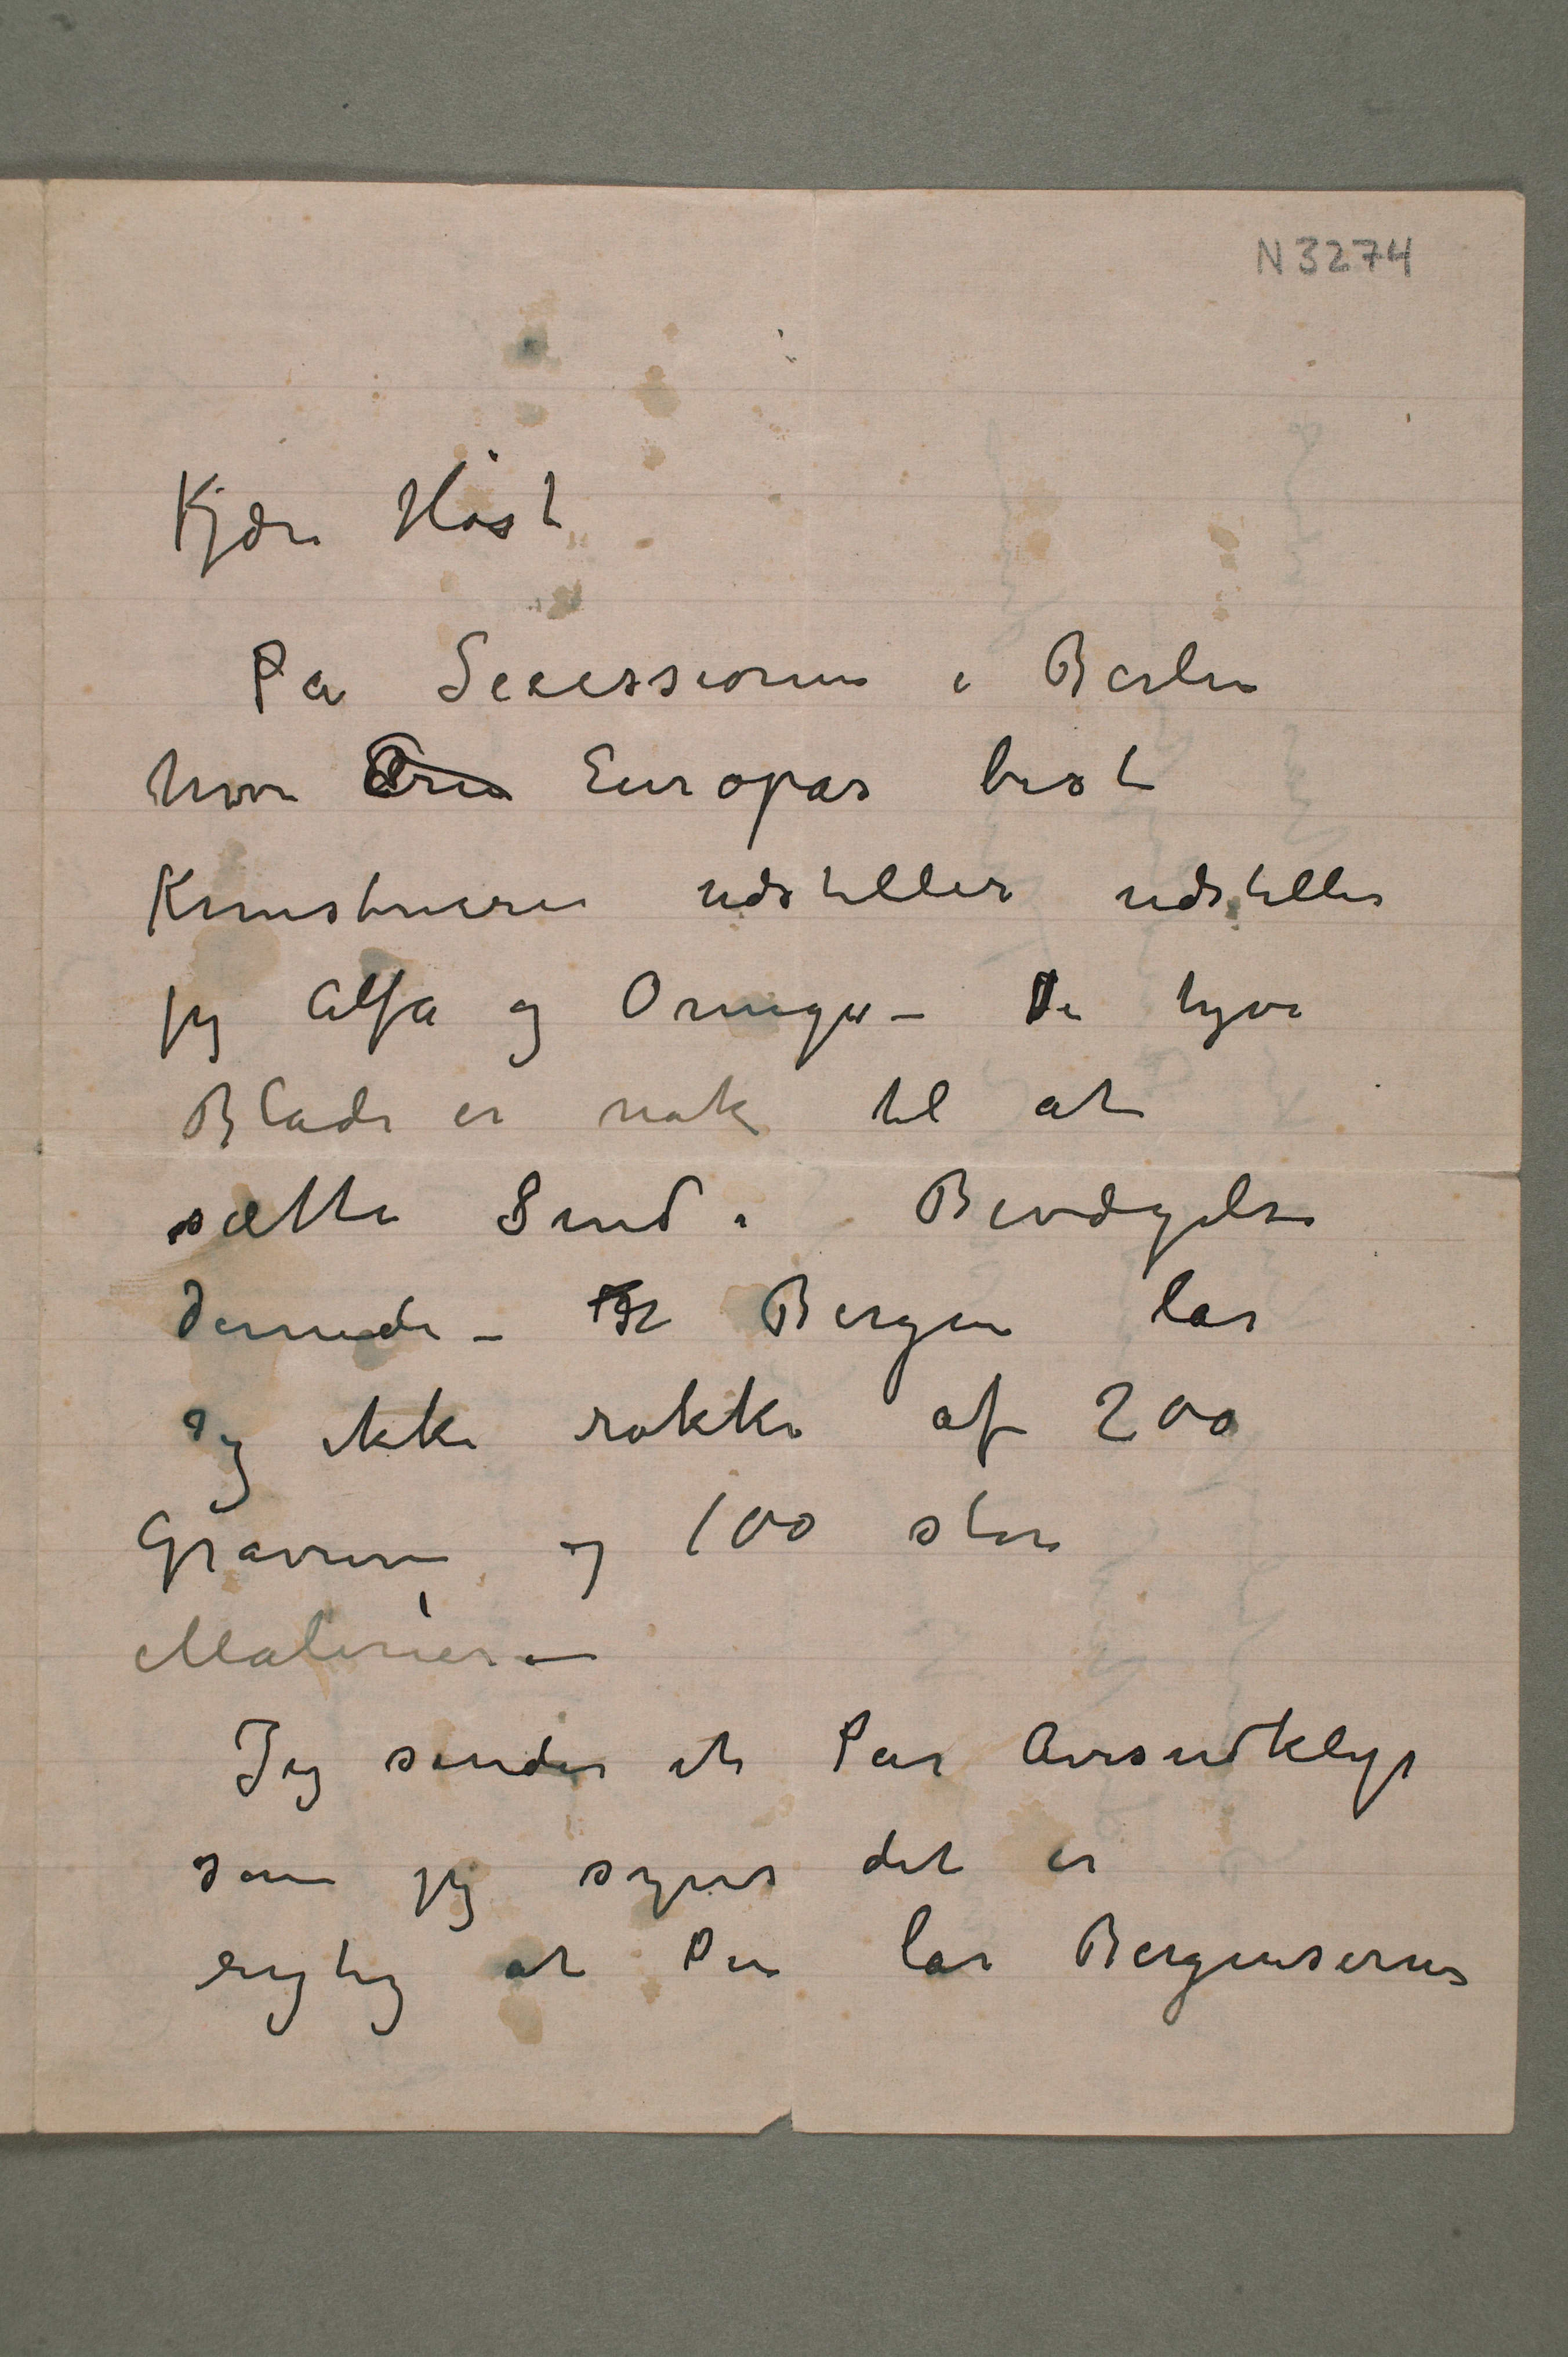 N 3274
Kjære Høst
På Secessionen i Berlin
hvor Europas best
Kunstnere udstiller udstiller
jeg Alfa og Omega – De tyve
Blade er nok til at
sætte Sind i Bevægelse
dernede – Bergen lar
sig ikke rokke af 200
Gravurer og 100 store
Malerier. –
Jeg sender et Par Avisudklip
som jeg synes det er
rigtig at Du lar Bergenserne